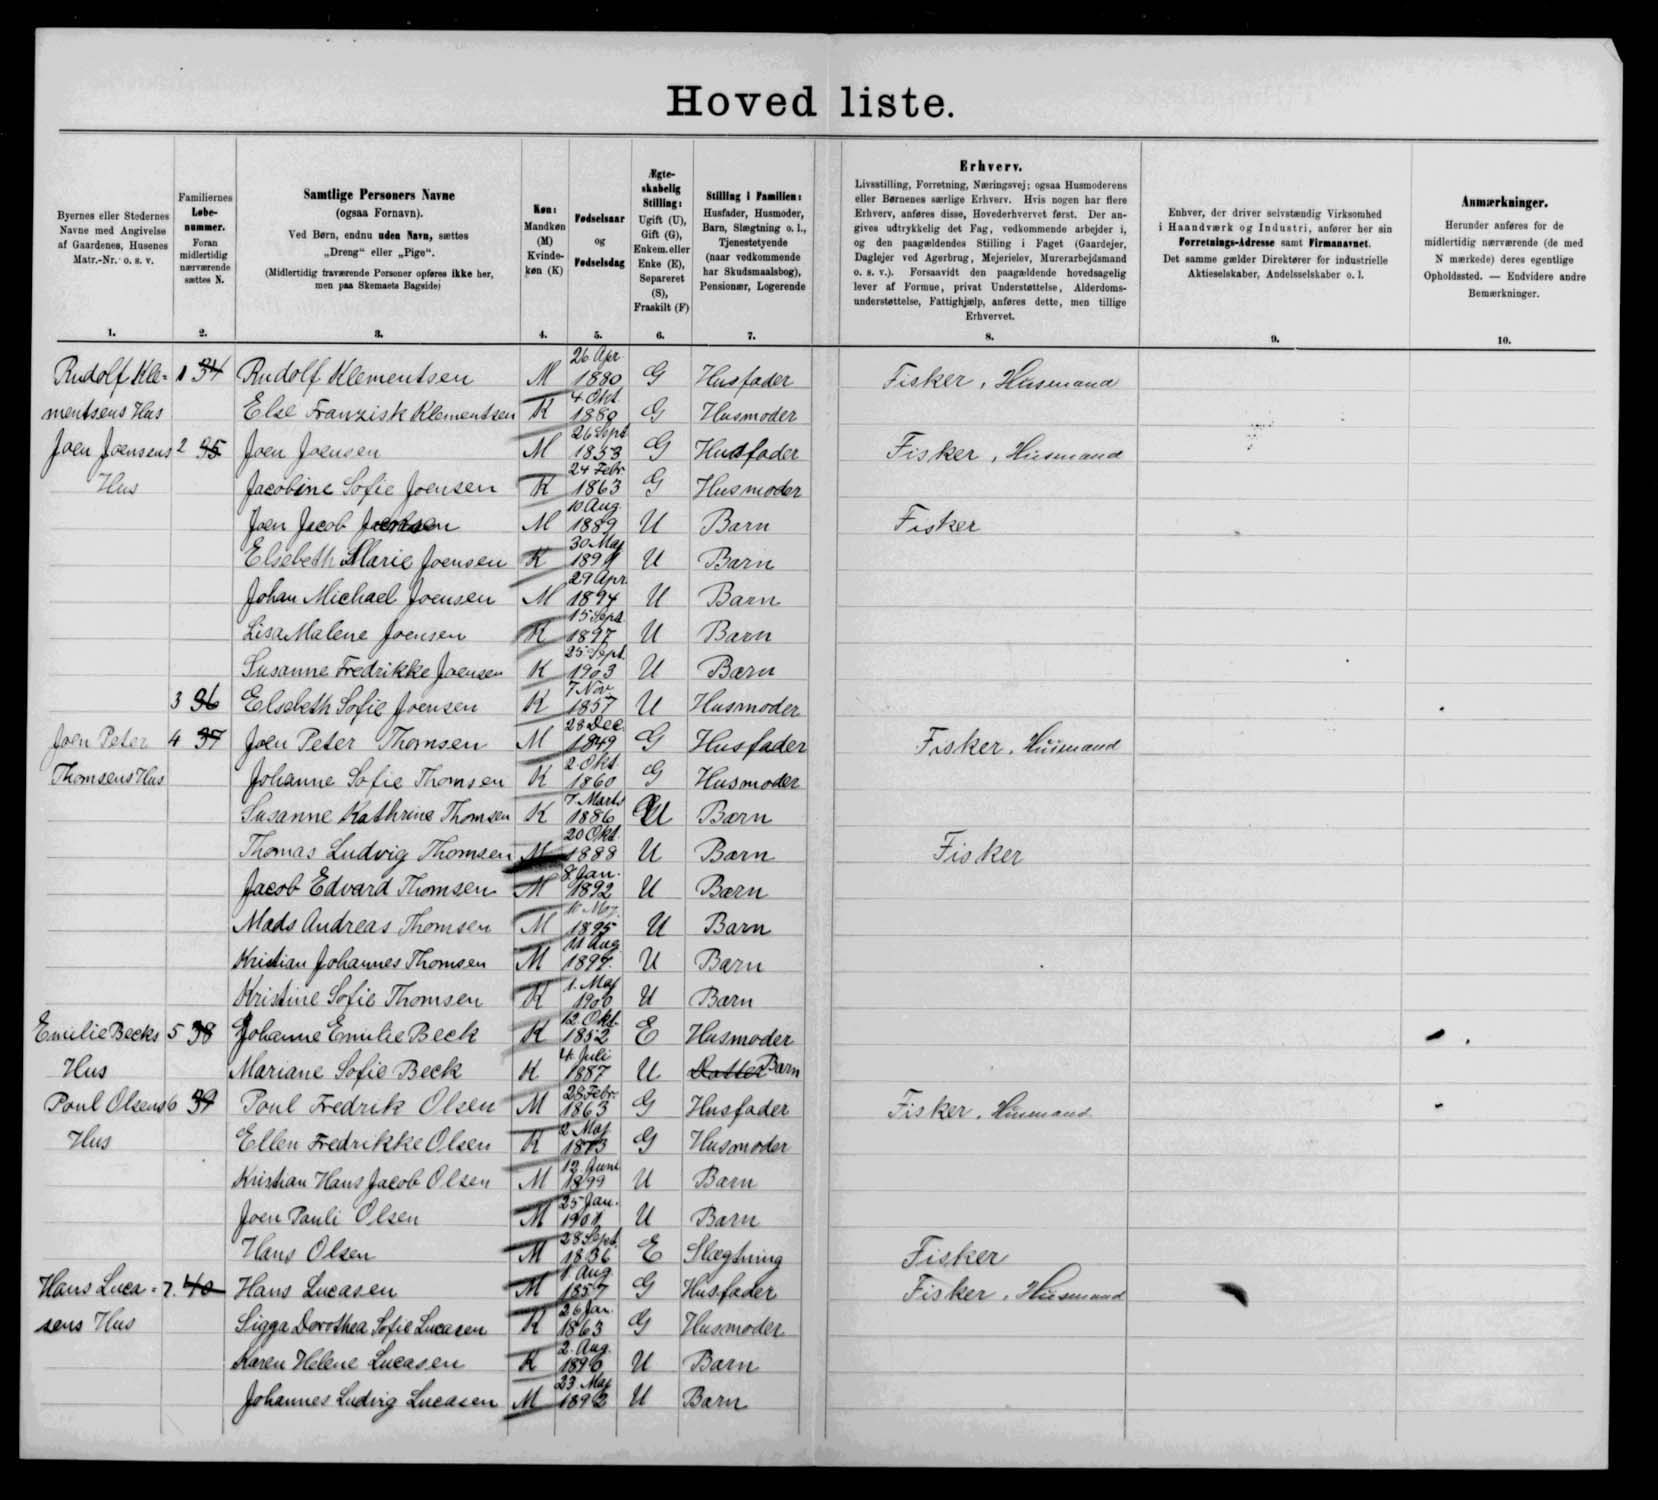 Hovedliste.
Byernes eller Stedernes
Navne med Angivelse
af Gaardenes, Husenes
Matr.-Nr. o. s. v.
Familiernes
Løbe-
nummer.
Foran
midlertidig
nærværende
sættes N.
Samtlige Personers Navne
(ogsaa Fornavn).
Ved Børn, endnu uden Navn, sættes
„Dreng“ eller „Pige“.
(Midlertidig fraværende Personer opføres ikke her,
men paa Skemaets Bagside)
Køn:
Mandkøn
(M)
Kvinde-
køn (K)
Fødselsaar
og
Fødselsdag
Ægte-
skabelig
Stilling:
Ugift (U),
Gift (G),
Enkem. eller
Enke (E),
Separeret
(S),
Fraskilt (F)
Stilling i Familien:
Husfader, Husmoder,
Barn, Slægtning o. l.,
Tjenestetyende
(naar vedkommende
har Skudsmaalsbog),
Pensionær, Logerende
Erhverv.
Livsstilling, Forretning, Næringsvej; ogsaa Husmoderens
eller Børnenes særlige Erhverv. Hvis nogen har flere
Erhverv, anføres disse, Hovederhvervet først. Der an-
gives udtrykkelig det Fag, vedkommende arbejder i,
og den paagældendes Stilling i Faget (Gaardejer,
Daglejer ved Agerbrug, Mejerielev, Murerarbejdsmand
o. s. v.). Forsaavidt den paagældende hovedsagelig
lever af Formue, privat Understøttelse, Alderdoms-
understøttelse, Fattighjælp, anføres dette, men tillige
Erhvervet.
Enhver, der driver selvstændig Virksomhed
i Haandværk og Industri, anfører her sin
Forretnings-Adresse samt Firmanavnet.
Det samme gælder Direktører for industrielle
Aktieselskaber, Andelsselskaber o. l.
Anmærkninger.
Herunder anføres for de
midlertidig nærværende (de med
N mærkede) deres egentlige
Opholdssted. — Endvidere andre
Bemærkninger.
1. 2. 3. 4. 5. 6. 7. 8. 9. 10.
Rudolf Kle= 1 34 Rudolf Klementsen M 26 Apr 1880 G Husfader Fisker, Husmand
mentsens Hus Else Franzisk Klementsen K 4 Okt. 1880 G Husmoder
Joen Joensens 2 35 Joen Joensen M 26 Sept 1853 G Husfader Fisker, Husmand
Hus Jacobine Sofie Joensen K 24 Febr 1863 G Husmoder
Joen Jacob Joensen M 10 Aug. 1889 U Barn Fisker
Elsebeth Marie Joensen K 30 Maj 1891 U Barn
Johan Michael Joensen M 29 Apr. 1894 U Barn
Lisa Malene Joensen K 15 Sept. 1897 U Barn
Susanne Fredrikke Joensen K 25. Sept. 1903 U Barn
3 36 Elsebeth Sofie Joensen K 7 Nov 1857 U Husmoder
Joen Peter 4 37 Joen Peter Thomsen M 28 Dec. 1849 G Husfader Fisker, Husmand
Thomsens Hus Johanne Sofie Thomsen K 2 Okt. 1860 G Husmoder
Susanne Kathrine Thomsen K 7. Marts 1886 U Barn
Thomas Ludvig Thomsen M 20 Okt. 1888 U Barn Fisker
Jacob Edvard Thomsen M 8. Jan. 1892 U Barn
Mads Andreas Thomsen M 11 Maj. 1895 U Barn
Kristian Johannes Thomsen M 11 Aug 1897. U Barn
Kristine Sofie Thomsen K 1. Maj 1900 U Barn
Emilie Becks 5 38 Johanne Emilie Beck K 12. Okt. 1852 E Husmoder
Hus Mariane Sofie Beck K 4. Juli 1887 U Datter Barn
Poul Olsens 6 39 Poul Fredrik Olsen M 28 Febr. 1863 G Husfader Fisker, Husmand
Hus Ellen Fredrikke Olsen K 2 Maj 1873 G Husmoder
Kristian Hans Jacob Olsen M 12. Juni 1899 U Barn
Joen Pauli Olsen M 25 Jan. 1901 U Barn
Hans Olsen M 28 Sept. 1836 E Slægtning Fisker
Hans Luca= 7. 40 Hans Lucasen M 1 Aug. 1857 G Husfader Fisker, Husmand
sens Hus Sigga Dorothea Sofie Lucasen K 26 Jan. 1863 G Husmoder
Karen Helene Lucasen K 2. Aug. 1890 U Barn
Johannes Ludvig Lucasen M 23. Maj 1892 U Barn